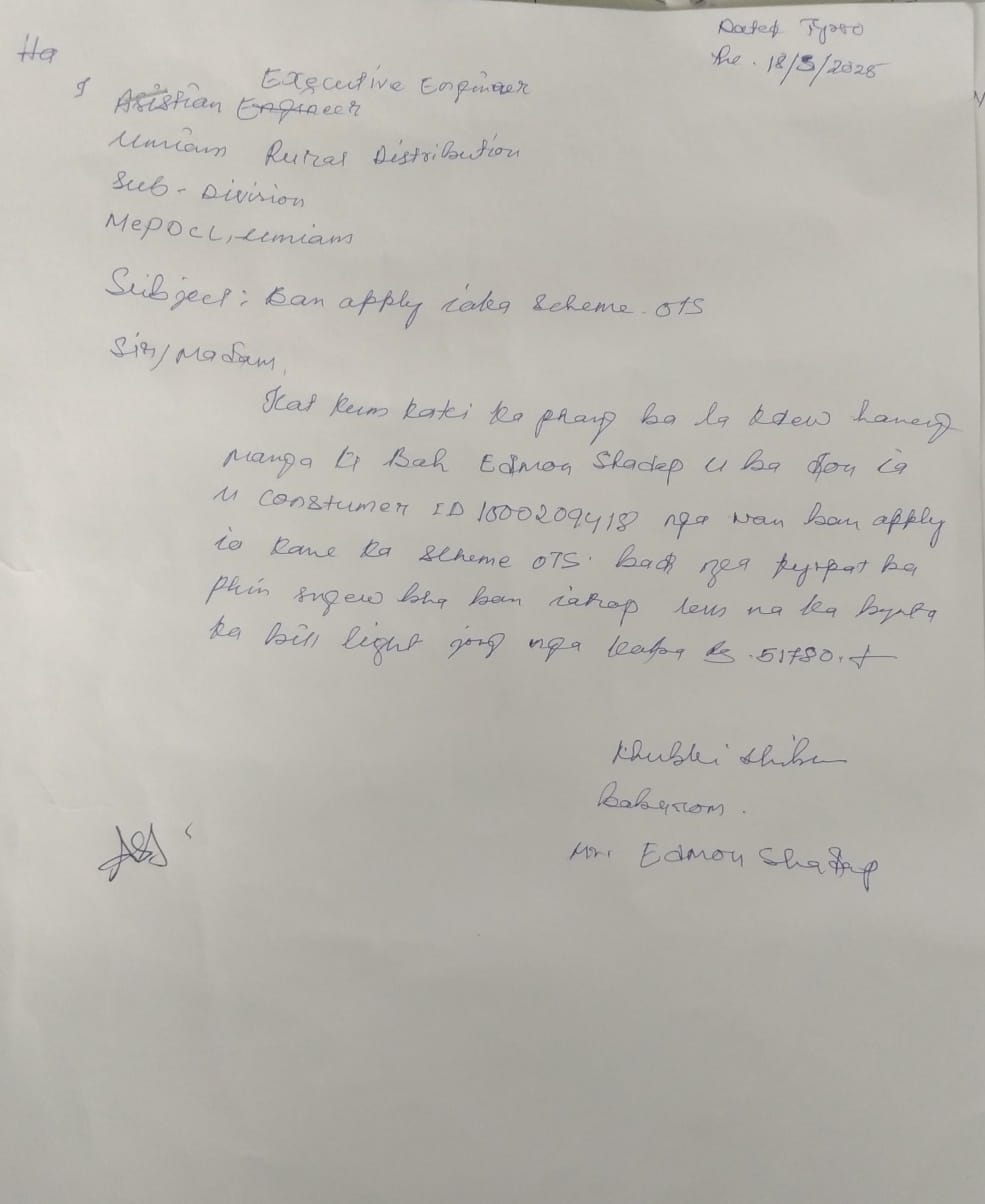 Dated Tyrso
the. 18/5/2025
Ha
Executive Engineer
Asistian Engineer
Umiam Rural Distribution
Sub - Division
MePDCL, Umiam
Subject: Ban apply iaka scheme. OTS
Sir/Madam,
Kat kum kaki ka phang ba la kdew haneng
manga U Bah Edmon Shadap u ba don ia
u constumer ID 1000209418 nga wan ban apply
ia kane ka scheme OTS. bad nga kyrpat ba
phin sngew bha ban iarap lem na ka bynta
ka bill light jong nga katba Rs. 51780.
Khublei shibun
Babarom.
Mr. Edmon Shadap